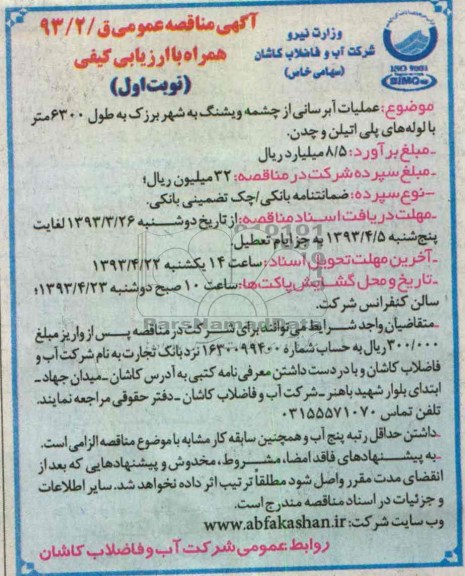 آگهی مناقصه عمومی ق/۹۳/۲
همراه با ارزیابی کیفی
(نوبت اول)
وزارت نیرو
شرکت آب و فاضلاب کاشان
(سهامی خاص)
ISO 9001
SIMC
موضوع: عملیات آبرسانی از چشمه ویشنگ به شهر برزک به طول ۶۳۰۰ متر
با لوله‌های پلی اتیلن و چدن.
-مبلغ برآورد: ۸/۵ میلیارد ریال
-مبلغ سپرده شرکت در مناقصه: ۳۲ میلیون ریال؛
-نوع سپرده: ضمانتنامه بانکی/چک تضمینی بانکی.
-مهلت دریافت اسناد مناقصه: از تاریخ دوشنبه ۱۳۹۳/۳/۲۶ لغایت
پنج‌شنبه ۱۳۹۳/۴/۵ به جز ایام تعطیل.
-آخرین مهلت تحویل اسناد: ساعت ۱۴ یکشنبه ۱۳۹۳/۴/۲۲
-تاریخ و محل گشایش پاکت‌ها: ساعت ۱۰ صبح دوشنبه ۱۳۹۳/۴/۲۳؛
سالن کنفرانس شرکت.
-متقاضیان واجد شرایط می‌توانند برای شرکت در مناقصه پس از واریز مبلغ
۳۰۰/۰۰۰ ریال به حساب شماره ۱۶۳۰۰۹۹۴۰۰ نزد بانک تجارت به نام شرکت آب و
فاضلاب کاشان و با در دست داشتن معرفی نامه کتبی به آدرس کاشان ـ میدان جهاد ـ
ابتدای بلوار شهید باهنر ـ شرکت آب و فاضلاب کاشان ـ دفتر حقوقی مراجعه نمایند.
تلفن تماس ۰۳۱۵۵۵۷۱۰۷۰
-داشتن حداقل رتبه پنج آب و همچنین سابقه کار مشابه با موضوع مناقصه الزامی است.
-به پیشنهادهای فاقد امضا، مشروط، مخدوش و پیشنهادهایی که بعد از
انقضای مدت مقرر واصل شود مطلقاً ترتیب اثر داده نخواهد شد. سایر اطلاعات
و جزئیات در اسناد مناقصه مندرج است.
وب سایت شرکت: www.abfakashan.ir
روابط عمومی شرکت آب و فاضلاب کاشان